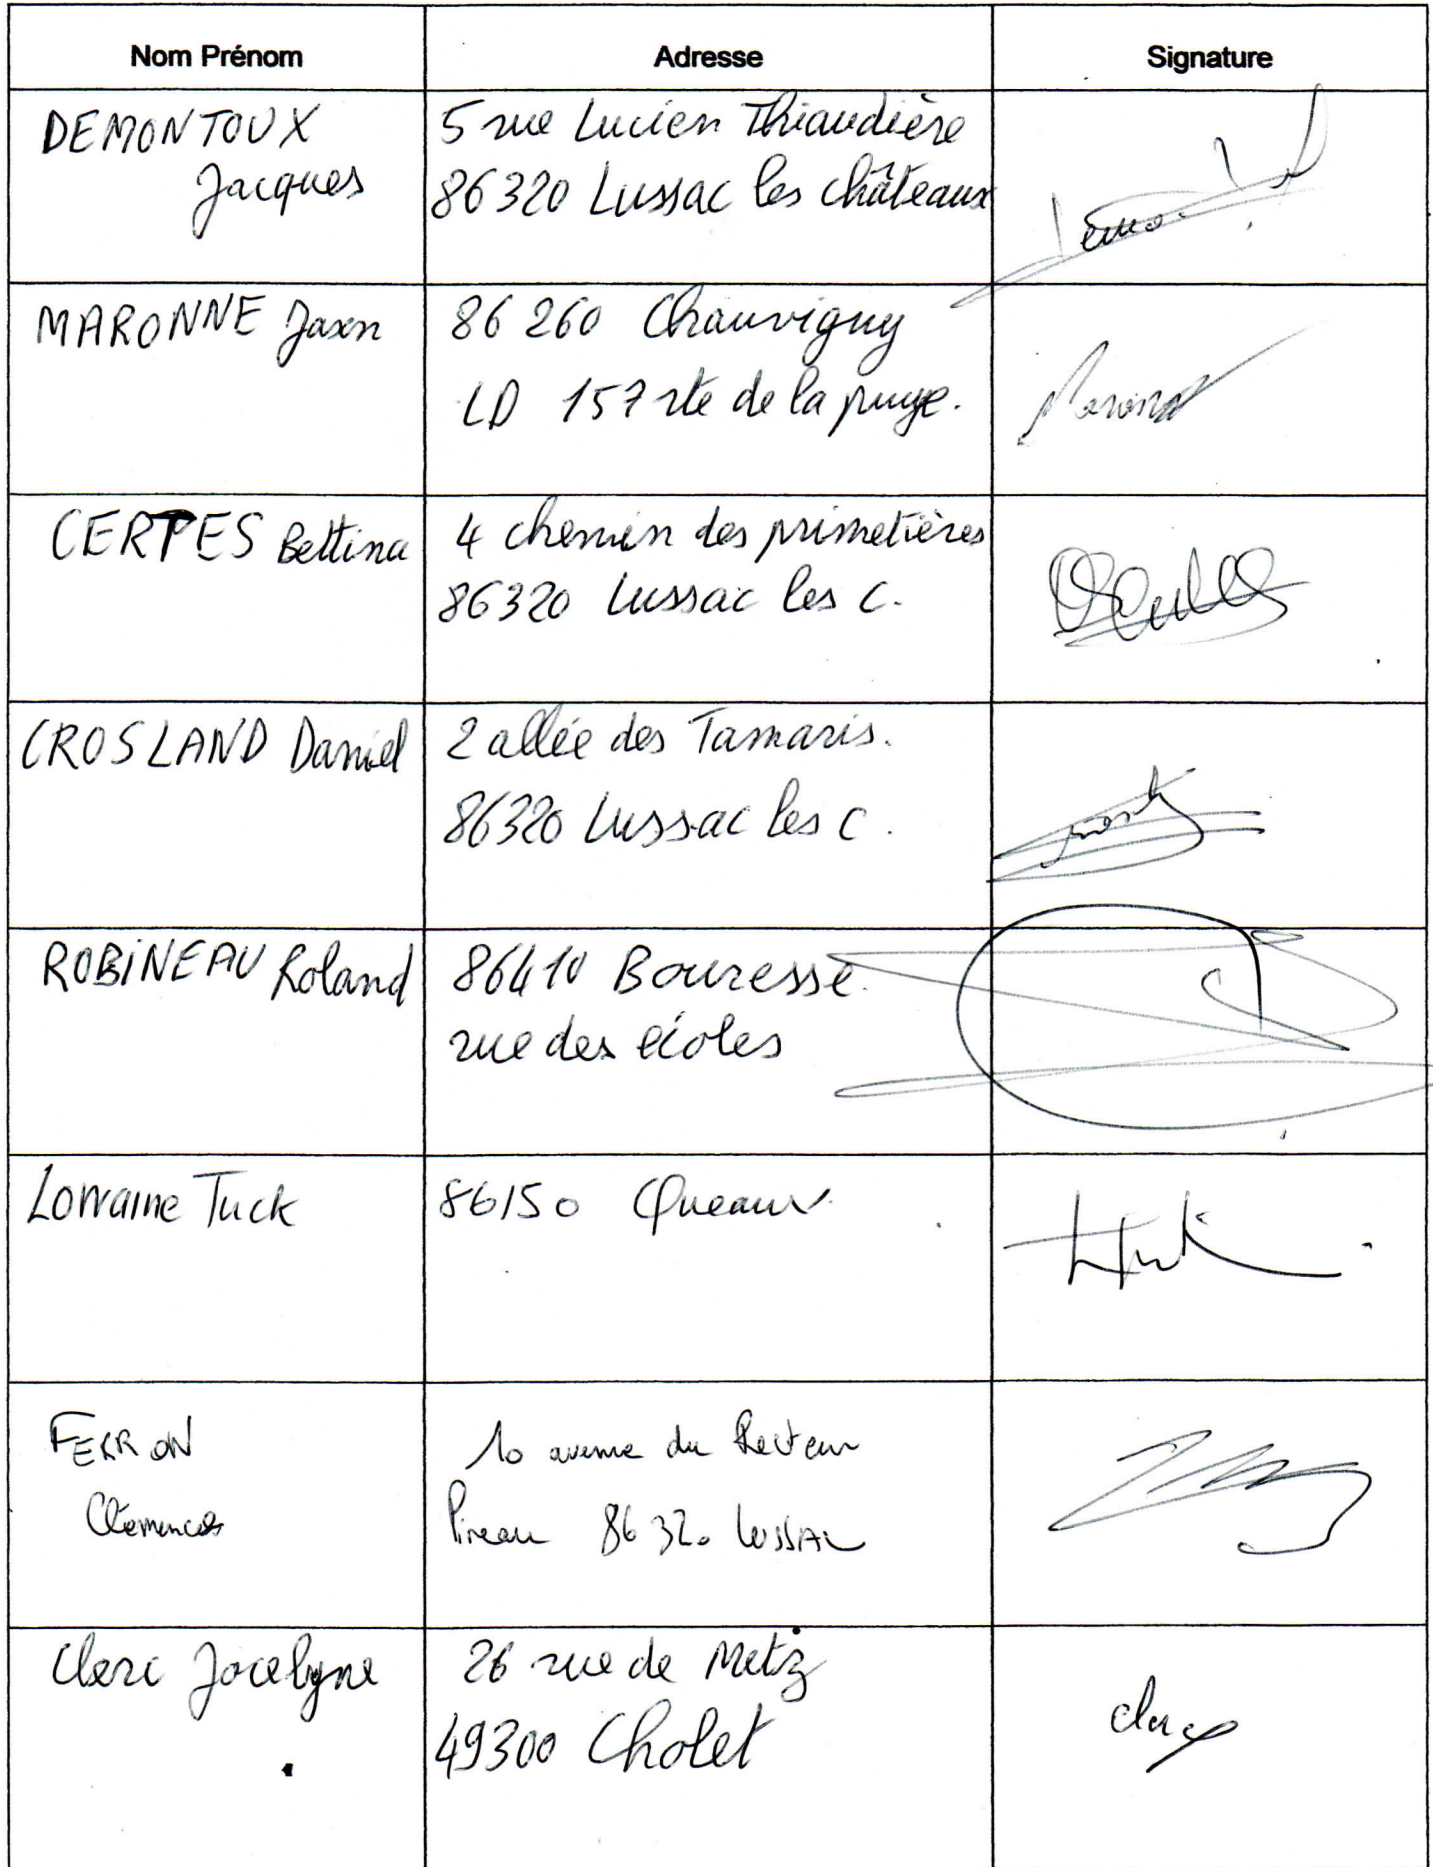 Nom Prénom
Adresse
Signature
DEMONTOUX
Jacques
5 rue Lucien Thiaudière
86320 Lussac les châteaux
MARONNE Jason
86 260 Chauvigny
LD 157 rte de la puye.
CERTES Bettina
4 chemin des primetières
86320 Lussac les C.
CROSLAND Daniel
2 allée des Tamaris.
86320 Lussac les C.
ROBINEAU Roland
86410 Bouresse.
rue des écoles
Lorraine Tuck
86150 Queaux
FERRON
10 avenue du Recteur
Pineau 86320 LUSSAC
Clerc Jocelyne
26 rue de Metz
49300 Cholet
clerc